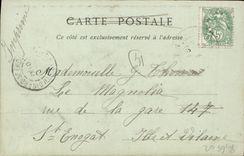 Imprimé
CARTE POSTALE
Ce côté est exclusivement réservé à l'adresse
Mademoiselle J.
Le Magnolia
rue de la gare 147
St Enogat Ille et Vilaine